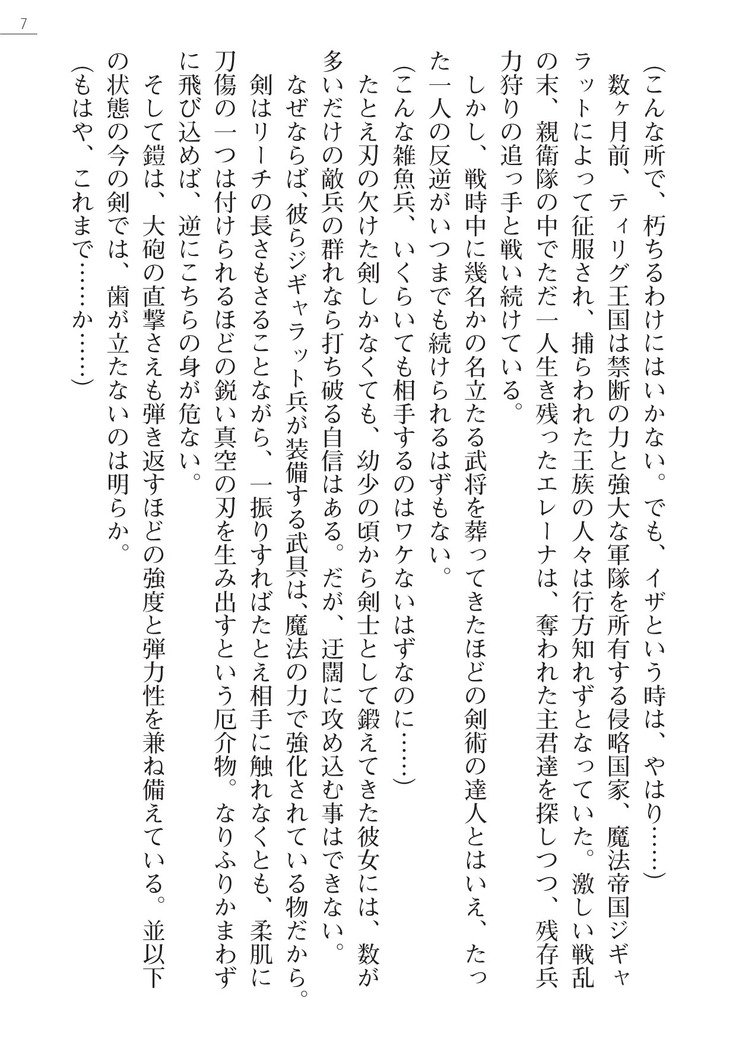 7
(こんな所で、朽ちるわけにはいかない。でも、イザという時は、やはり……)
数ヶ月前、ティリグ王国は禁断の力と強大な軍隊を所有する侵略国家、魔法帝国ジギャ
ラットによって征服され、捕らわれた王族の人々は行方知れずとなっていた。激しい戦乱
の末、親衛隊の中でただ一人生き残ったエレーナは、奪われた主君達を探しつつ、残存兵
力狩りの追っ手と戦い続けている。
しかし、戦時中に幾名かの名立たる武将を葬ってきたほどの剣術の達人とはいえ、たっ
た一人の反逆がいつまでも続けられるはずもない。
(こんな雑魚兵、いくらいても相手するのはワケないはずなのに……)
たとえ刃の欠けた剣しかなくても、幼少の頃から剣士として鍛えてきた彼女には、数が
多いだけの敵兵の群れなら打ち破る自信はある。だが、迂闊に攻め込む事はできない。
なぜならば、彼らジギャラット兵が装備する武具は、魔法の力で強化されている物だから。
剣はリーチの長さもさることながら、一振りすればたとえ相手に触れなくとも、柔肌に
刀傷の一つは付けられるほどの鋭い真空の刃を生み出すという厄介物。なりふりかまわず
に飛び込めば、逆にこちらの身が危ない。
そして鎧は、大砲の直撃さえも弾き返すほどの強度と弾力性を兼ね備えている。並以下
の状態の今の剣では、歯が立たないのは明らか。
(もはや、これまで……か……)